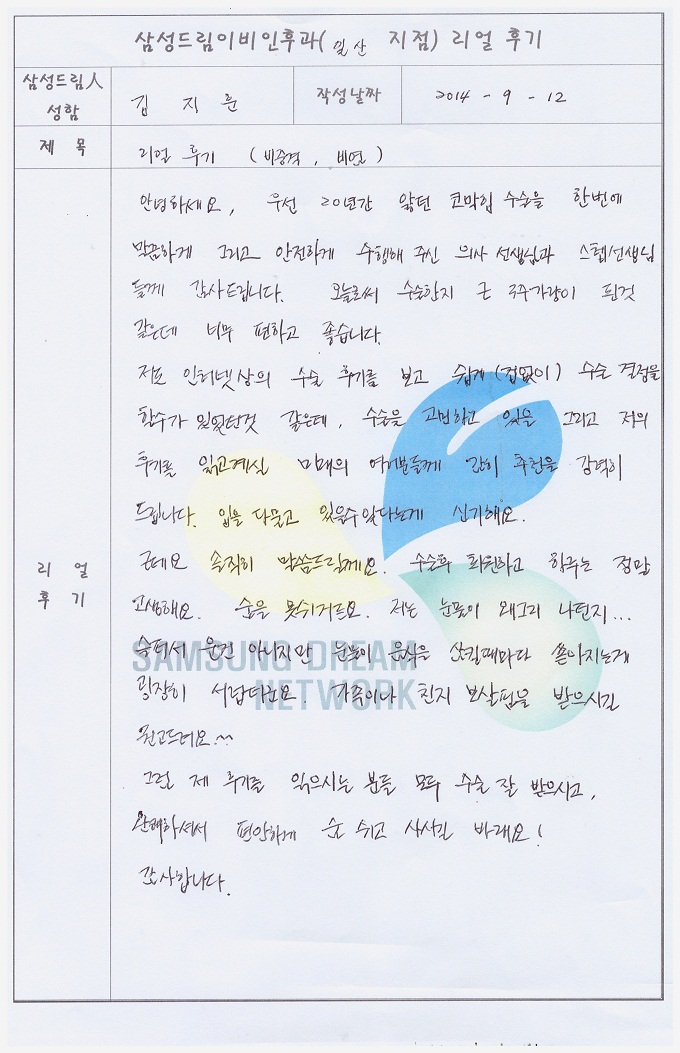 삼성드림이비인후과( 일산 지점) 리얼 후기
삼성드림人 성함
김 지 훈
작성날짜
2014 - 9 - 12
제 목
리얼 후기 ( 비중격 , 비염 )
리 얼 후 기
안녕하세요, 우선 20년간 앓던 코막힘 수술을 한번에
깍끔하게 그리고 안전하게 수행해 주신 의사 선생님과 스텝선생님
들께 감사드립니다. 오늘로써 수술한지 근 3주가량이 된것
같은데 너무 편하고 좋습니다.
저도 인터넷상의 수술 후기를 보고 쉽게 (겁없이) 수술 결정을
할수가 있었던것 같은데, 수술을 고민하고 있을 그리고 저의
후기를 읽고계실 미래의 여러분들께 감히 추천을 강력히
드립니다. 입을 다물고 있을수있다는게 신기해요.
근데요 솔직히 말씀드릴께요. 수술후 퇴원하고 하루는 정말
고생해요. 숨을 못쉬거든요. 저는 눈물이 왜그리 나던지...
슬퍼서 운건 아니지만 눈물이 음식을 삼킬때마다 쏟아지는게
굉장히 서럽더군요. 가족이나 친지 보살핌을 받으시길
권고드려요~~
그럼 제 후기를 읽으시는 분들 모두 수술 잘 받으시고,
완쾌하셔서 편안하게 숨 쉬고 사시길 바래요!
감사합니다.
SAMSUNG DREAM
NETWORK